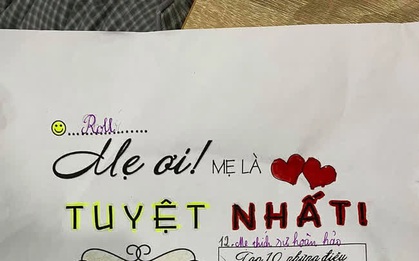 ...Roll......
Mẹ ơi! MẸ LÀ
TUYỆT NHẤT!
12. Mẹ thích sự hoàn hảo
Top 10 những điều